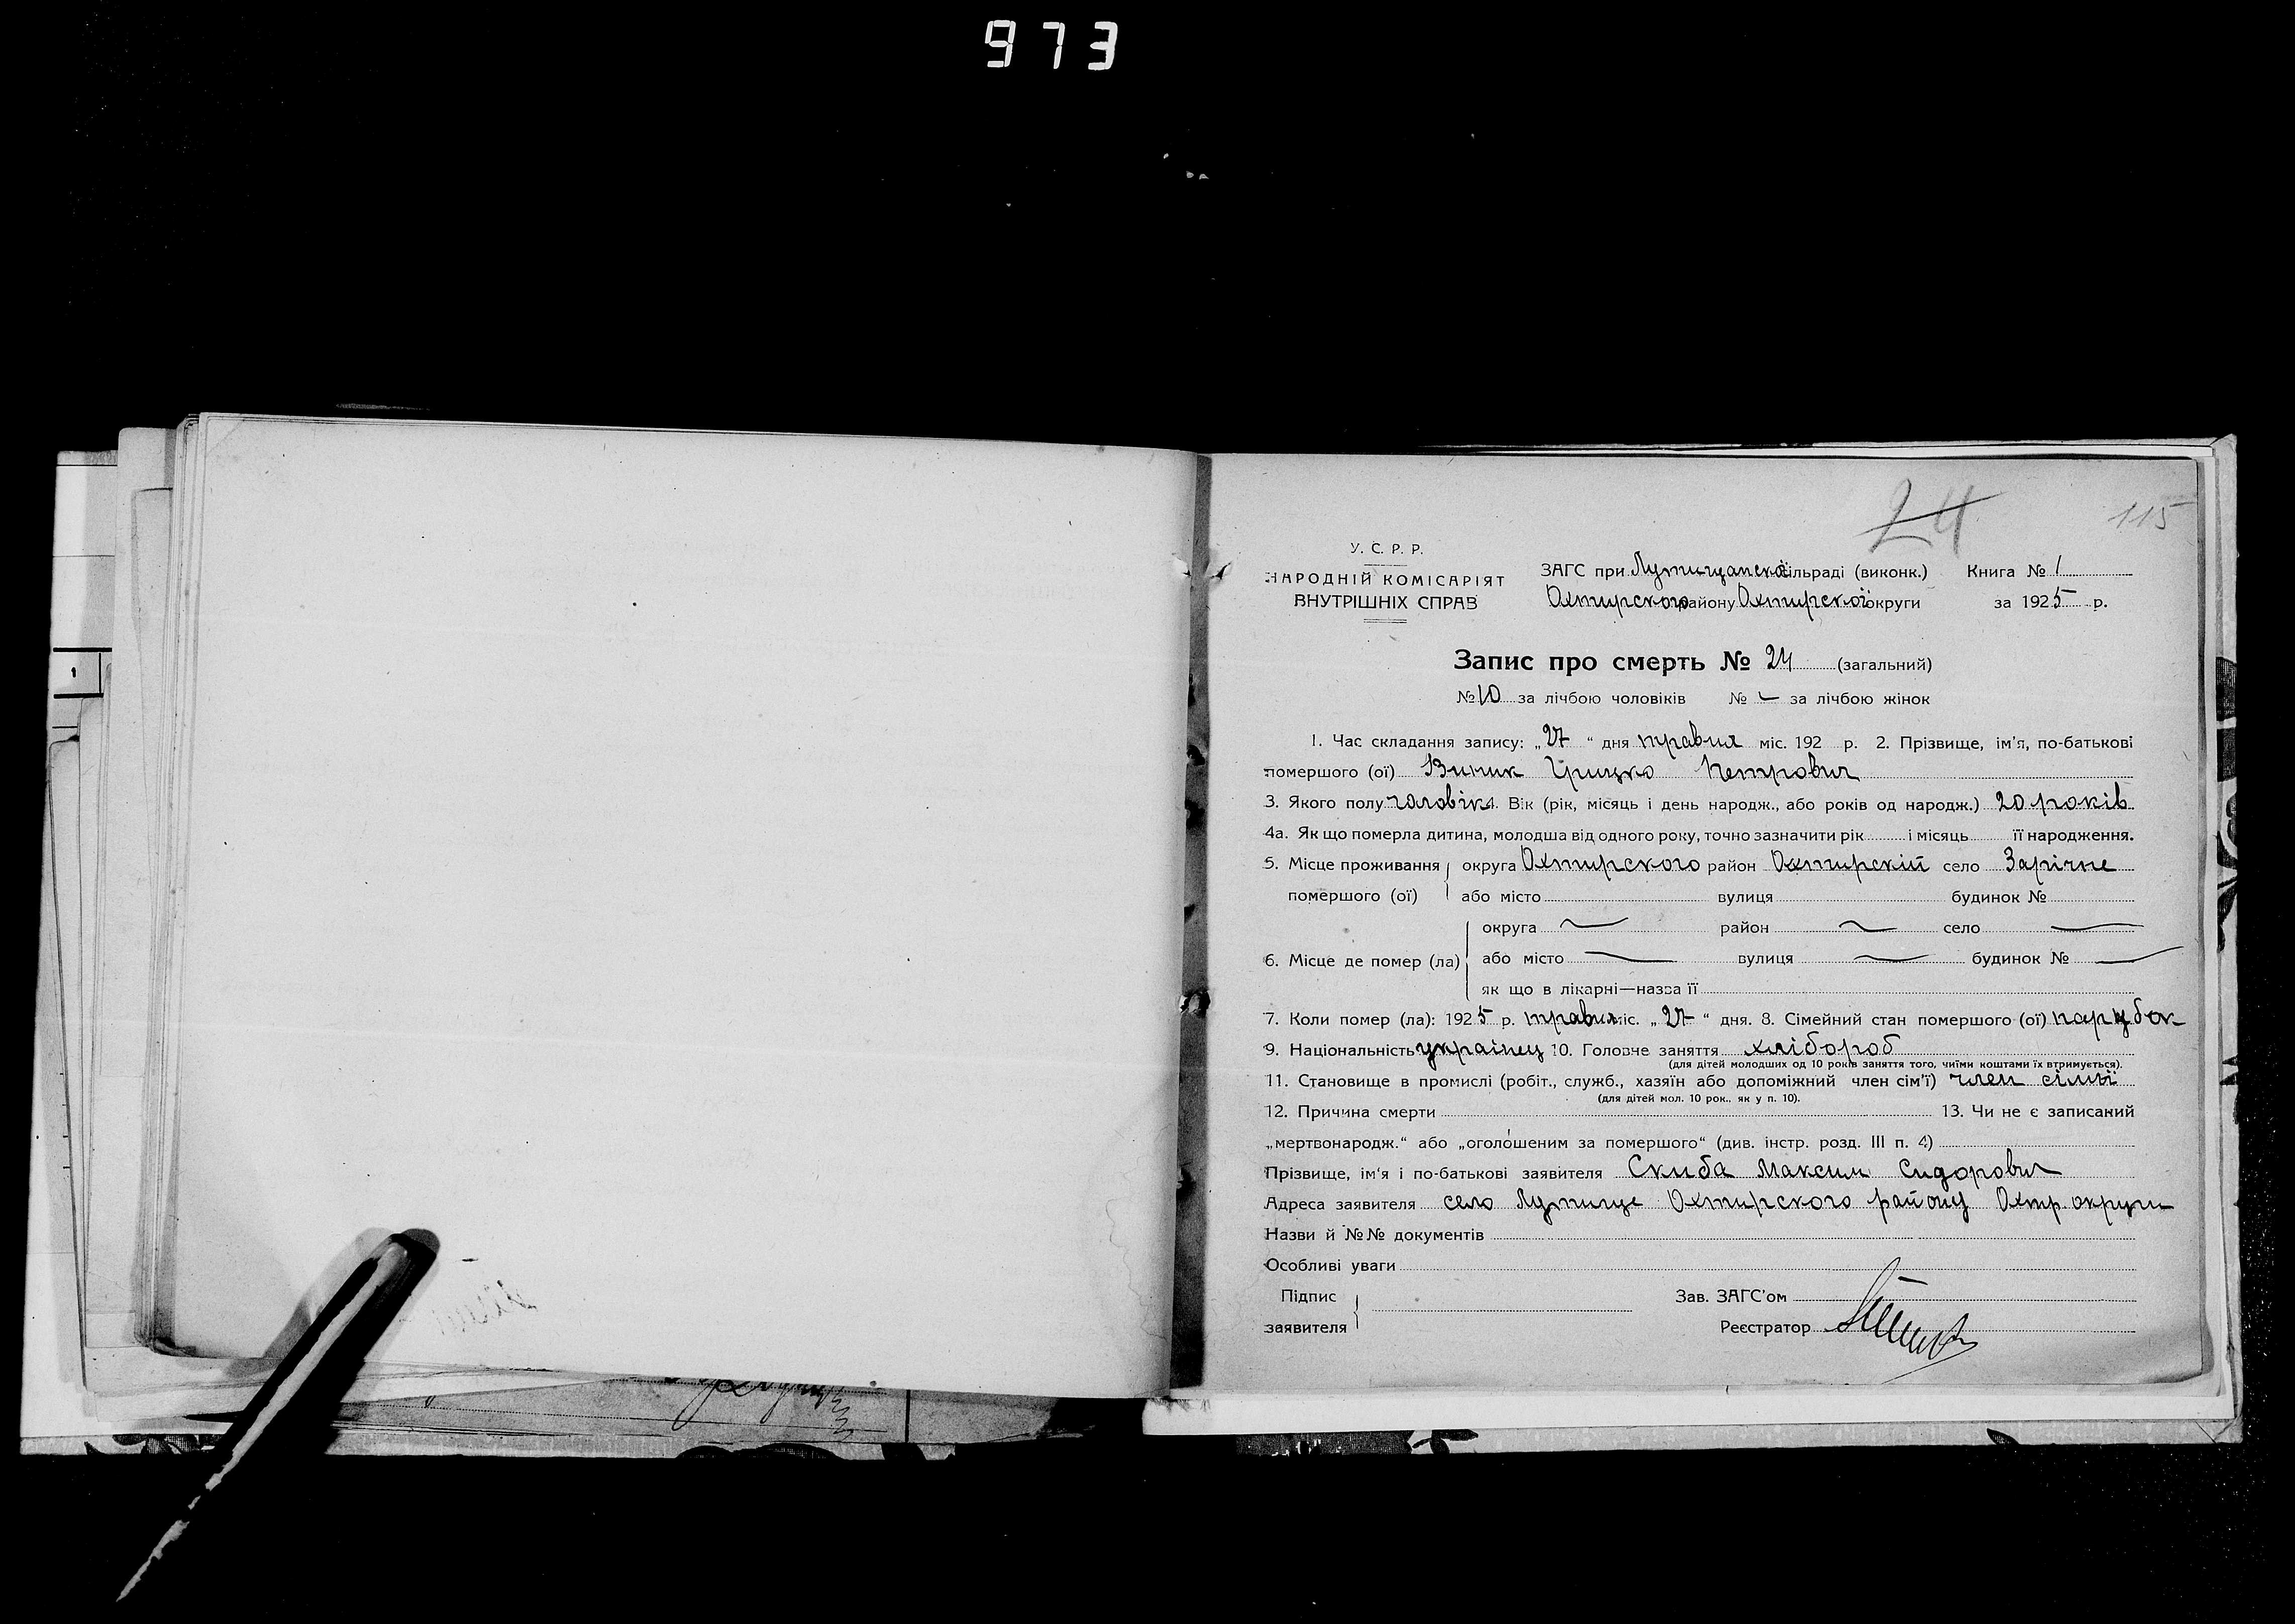 973
24 115
У. С. Р. Р.
НАРОДНІЙ КОМІСАРІЯТ
ВНУТРІШНІХ СПРАВ
ЗАГС при Лутищанскі сільраді (виконк.) Книга № 1
Охтирского району Охтирскої округи за 1925 р.
Запис про смерть № 24 (загальний)
№ 10 за лічбою чоловіків № – за лічбою жінок
1. Час складання запису: „27“ дня травня міс. 192 р. 2. Прізвище, ім'я, по-батькові
помершого (ої) Виник Грицко Петрович
3. Якого полу чоловік 4. Вік (рік, місяць і день народж., або років од народж.) 20 років
4а. Як що померла дитина, молодша від одного року, точно зазначити рік і місяць її народження.
5. Місце проживання округа Охтирского район Охтирскій село Зарічне
помершого (ої) або місто вулиця будинок №
округа — район — село —
6. Місце де помер (ла) або місто — вулиця — будинок № —
як що в лікарні—назва її
7. Коли помер (ла): 1925 р. травня міс. „27“ дня. 8. Сімейний стан помершого (ої) парубок
9. Національність украінец 10. Головне заняття хлібороб
(для дітей молодших од 10 років заняття того, чиїми коштами їх втримується).
11. Становище в промислі (робіт., служб., хазяїн або допоміжний член сім'ї) член сімьї
(для дітей мол. 10 рок., як у п. 10).
12. Причина смерти 13. Чи не є записаний
„мертвонародж.“ або „оголошеним за помершого“ (див. інстр. розд. III п. 4)
Прізвище, ім'я і по-батькові заявителя Скиба Максим Сидорович
Адреса заявителя село Лутище Охтирского району Охтр. округи
Назви й №№ документів
Особливі уваги
Підпис Зав. ЗАГС'ом
заявителя Реєстратор